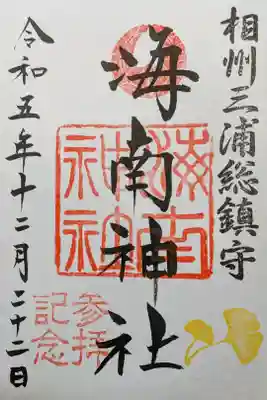 相州三浦総鎮守
海南神社
海南神社
参拝
記念
令和五年十二月二十二日